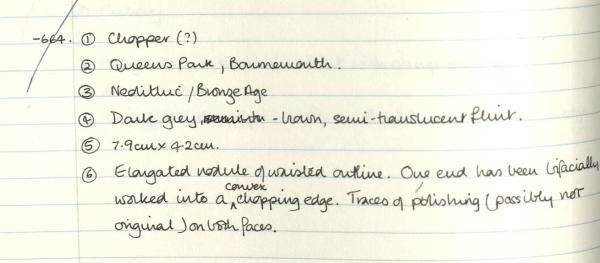 -664. ① Chopper (?)
② Queens Park, Bournemouth.
③ Neolithic / Bronze Age
④ Dark grey - brown, semi-translucent flint.
⑤ 7.9cm x 4.2cm.
⑥ Elongated nodule of waisted outline. One end has been bifacially
worked into a convex chopping edge. Traces of polishing (possibly not
original) on both faces.